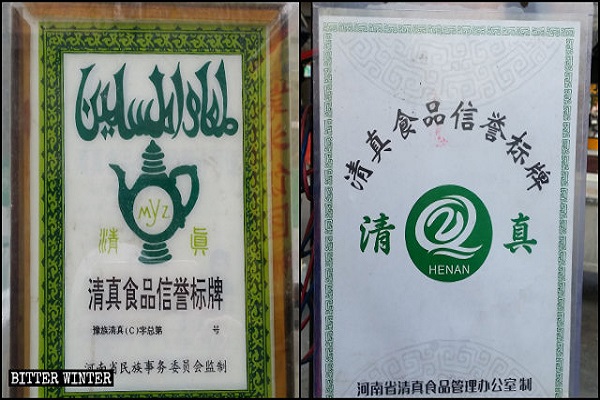 طعام المسلمين
MYZ
清 眞
清真食品信誉标牌
豫族清真(C)字总第 号
河南省民族事务委员会监制
BITTER WINTER
清真食品信誉标牌
清 真
HENAN
河南省清真食品管理办公室制